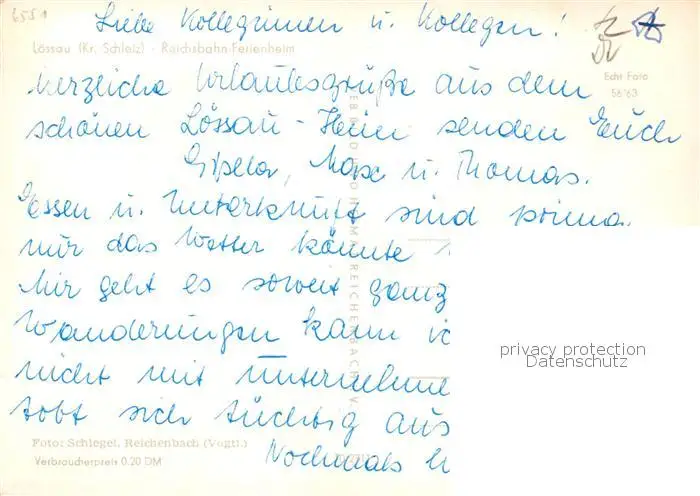 6551
Liebe Kolleginnen u. Kollegen!
Lössau (Kr. Schleiz) - Reichsbahn-Ferienheim
Echt Foto
56/63
herzliche Urlaubsgrüße aus dem
schönen Lössau-Heim senden Euch
Gisela, Max u. Thomas.
Essen u. Unterkunft sind prima.
nur das Wetter könnte
Mir geht es soweit ganz
Wanderungen kann ic
nicht mit unternehme
tobt sich tüchtig aus
Nochmals
Foto: Schlegel, Reichenbach (Vogtl.)
Verbraucherpreis 0.20 DM
privacy protection
Datenschutz